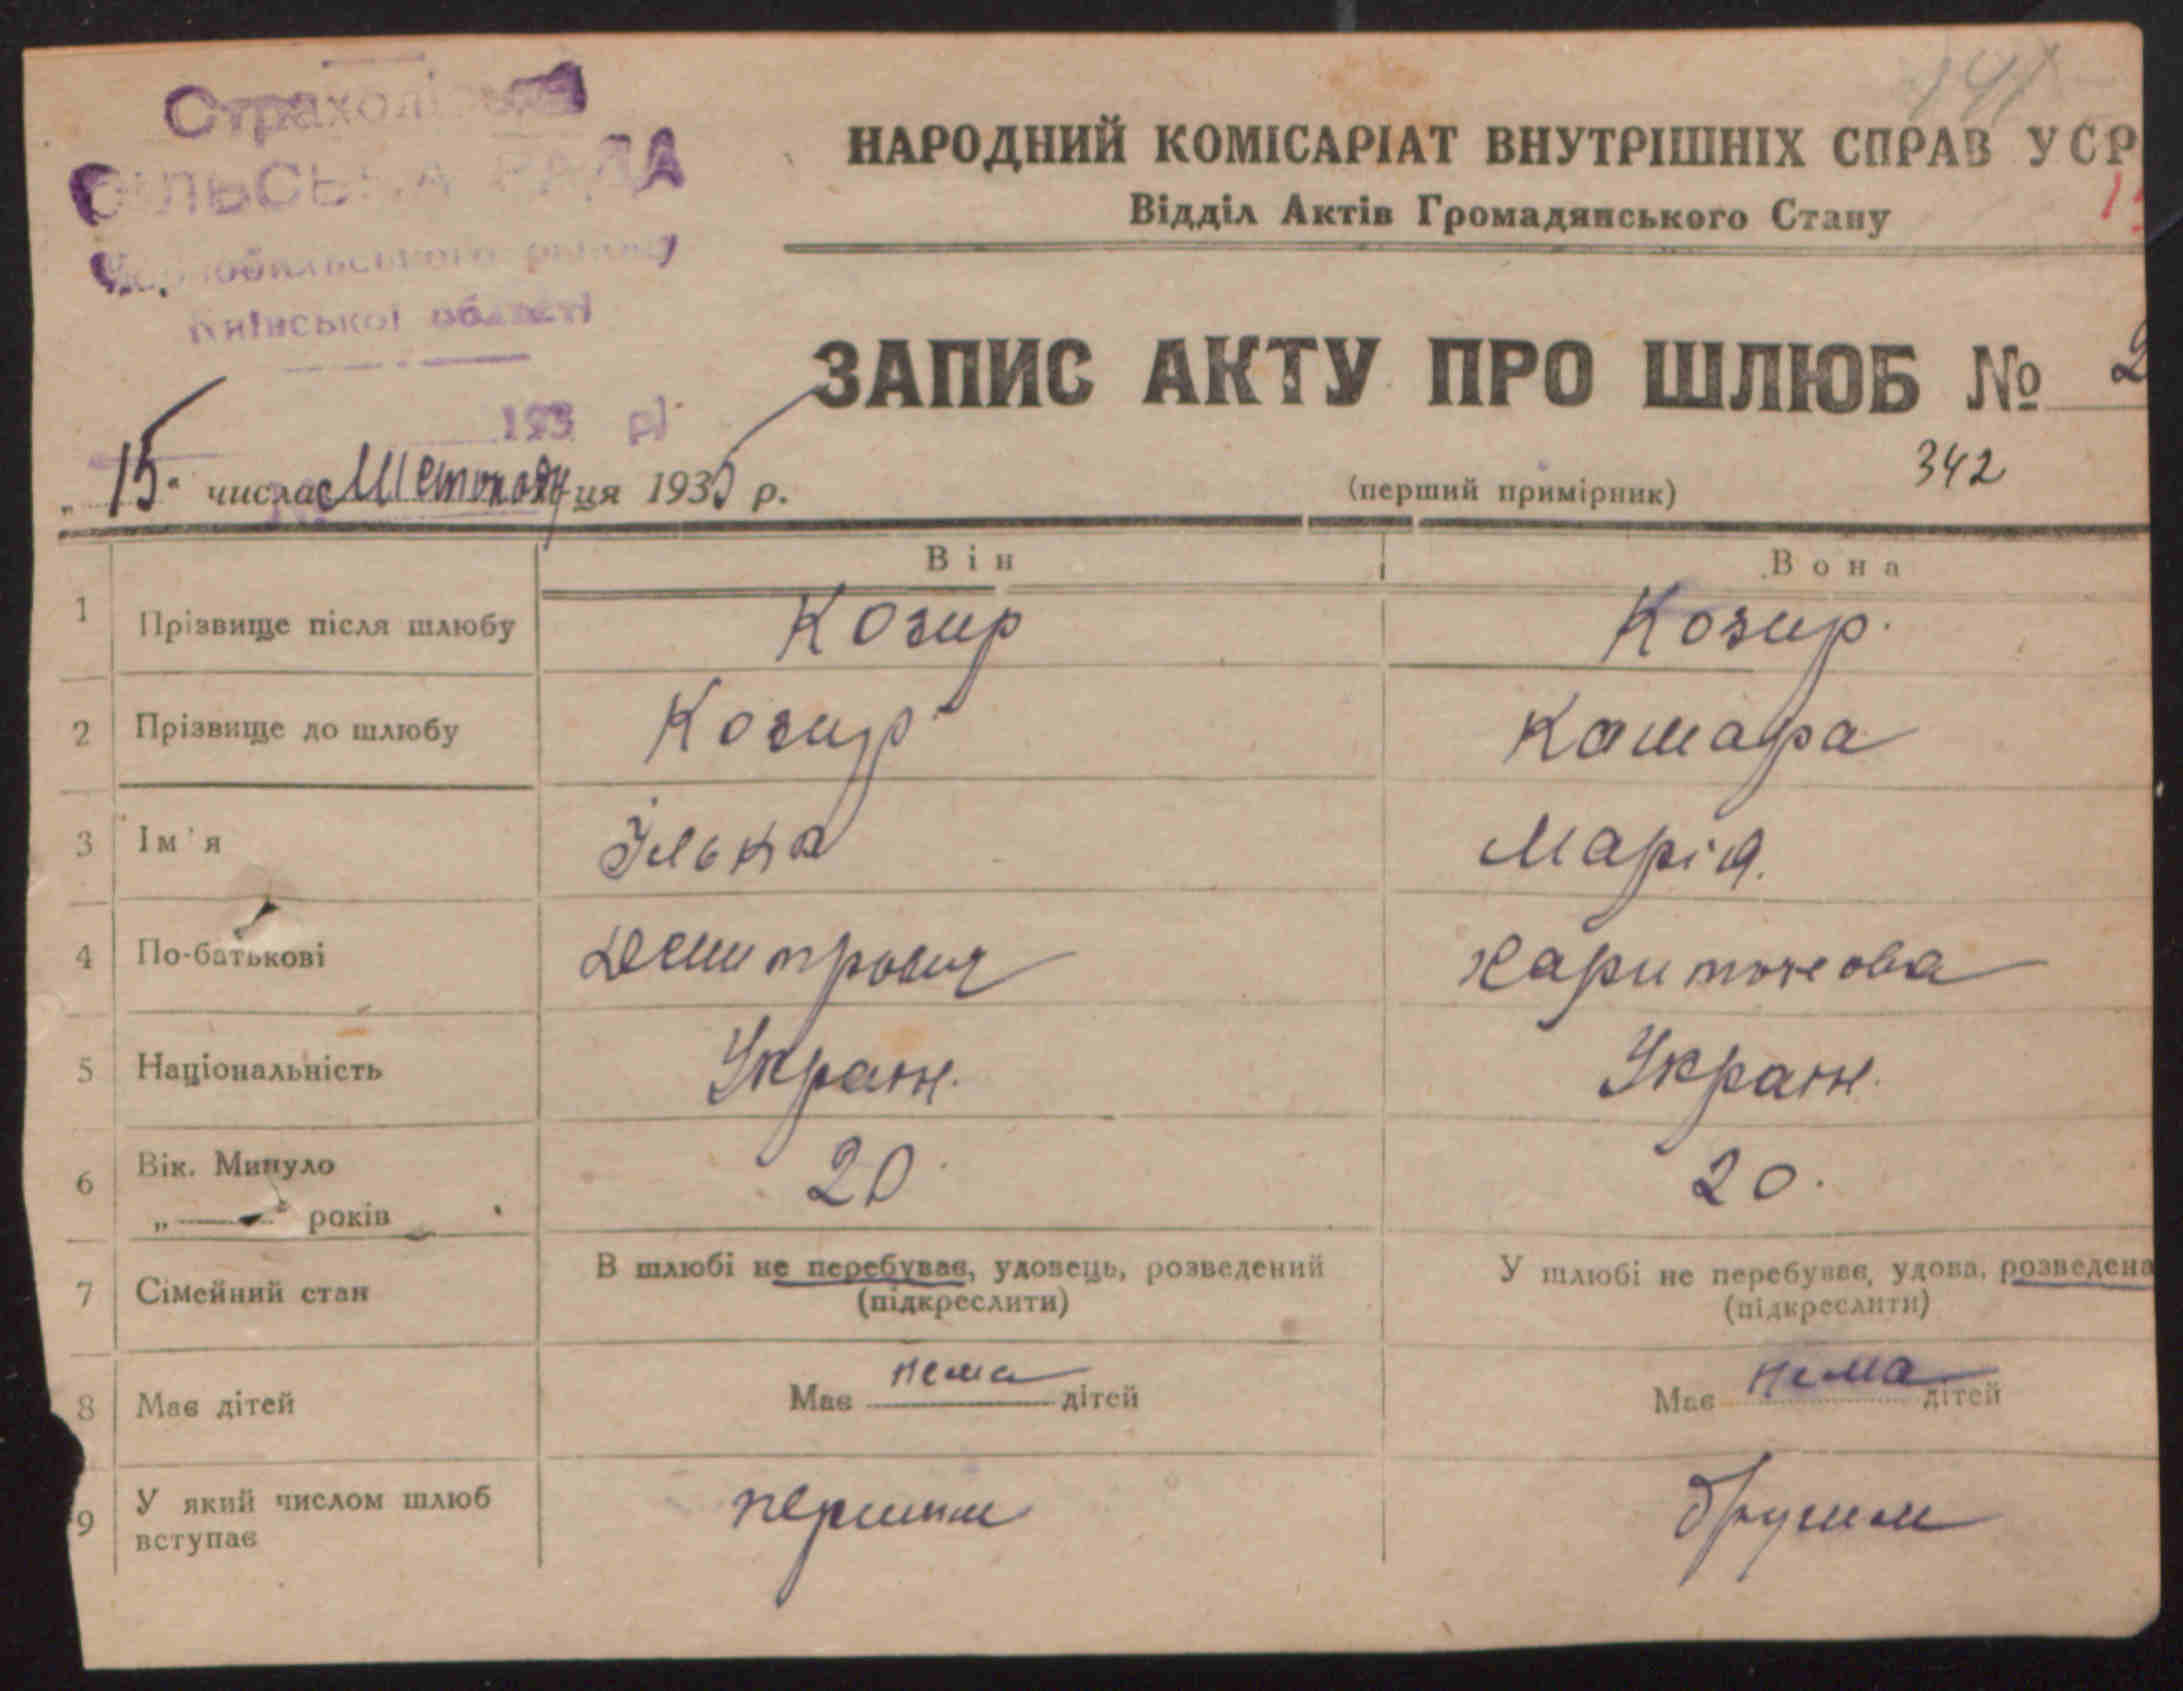 Страхоліська
СІЛЬСЬКА РАДА
Чорнобильського району
Київської області
193 р.
НАРОДНИЙ КОМІСАРІАТ ВНУТРІШНІХ СПРАВ УСР
Відділ Актів Громадянського Стану
ЗАПИС АКТУ ПРО ШЛЮБ № 2
„15" числа Листопаду ця 1935 р.
(перший примірник)
342
Він Вона
1 Прізвище після шлюбу Козир Козир.
2 Прізвище до шлюбу Козир Кашара
3 Ім'я Ілько Марія.
4 По-батькові Дмитрович Харитонова
5 Національність Україн. Україн.
6 Вік. Минуло 20 20.
„ — " років
7 Сімейний стан В шлюбі не перебував, удовець, розведений У шлюбі не перебував, удова, розведена
(підкреслити) (підкреслити)
8 Має дітей Має нема дітей Має нема дітей
9 У який числом шлюб першим другим
вступає